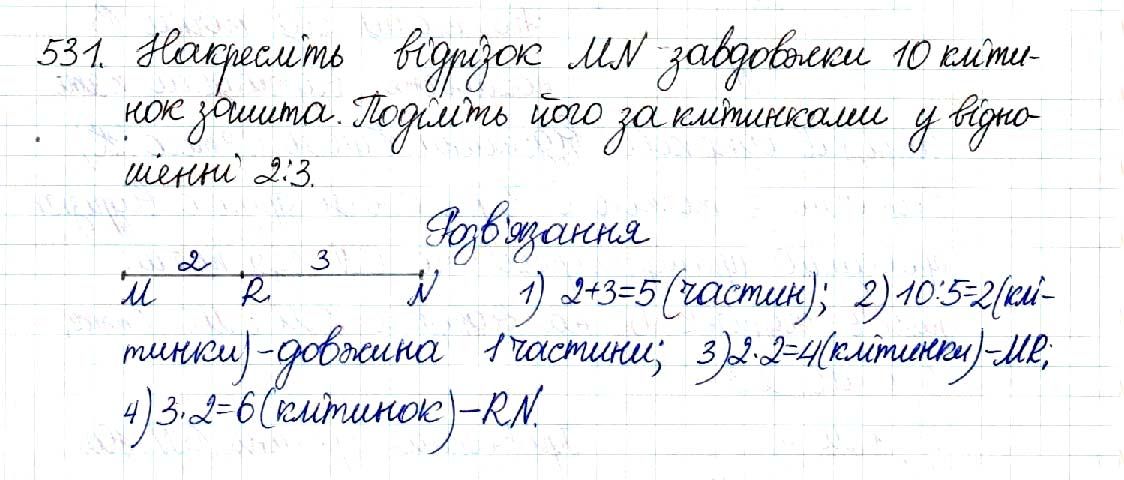 531. Накресліть відрізок MN завдовжки 10 кліти-
нок зошита. Поділіть його за клітинками у відно-
шенні 2:3.
Розв'язання
2 3
M R N 1) 2+3=5 (частин); 2) 10:5=2 (клі-
тинки) - довжина 1 частини; 3) 2·2=4 (клітинки) - MR;
4) 3·2=6 (клітинок) - RN.